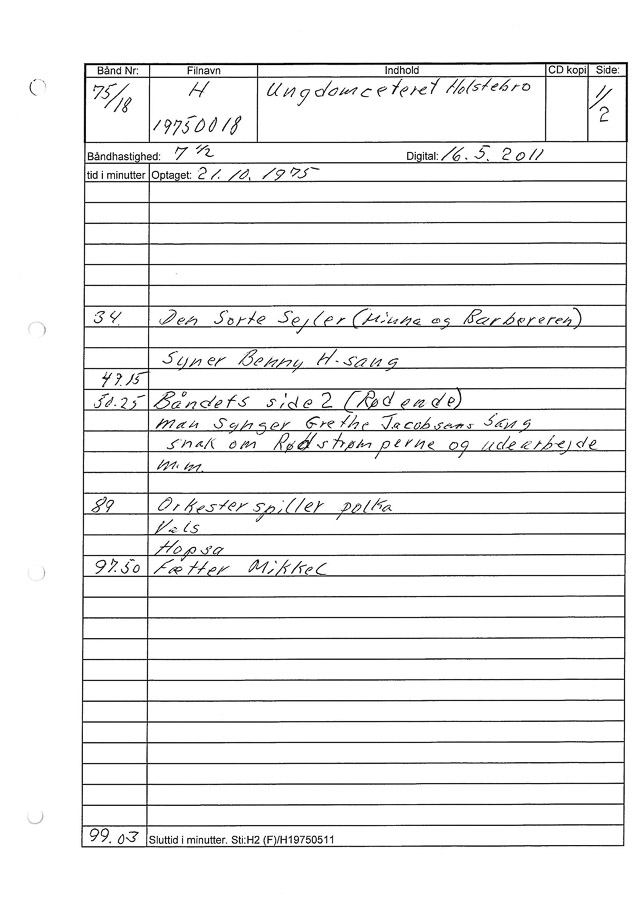 Bånd Nr: Filnavn Indhold CD kopi Side:
75/18 H Ungdomceteret Holstebro 1/2
19750018
Båndhastighed: 7 ½ Digital: 16.5.2011
tid i minutter Optaget: 21.10.1975
34. Den Sorte Sejler (Minna og Barbereren)
Syner Benny H-sang
49.15
50.25 Båndets side 2 (Rød ende)
man synger Grethe Jacobsens Sang
snak om Rødstrømperne og udearbejde
m.m.
89 Orkester spiller polka
Vals
Hopsa
97.50 Fætter Mikkel
99.03 Sluttid i minutter. Sti:H2 (F)/H19750511